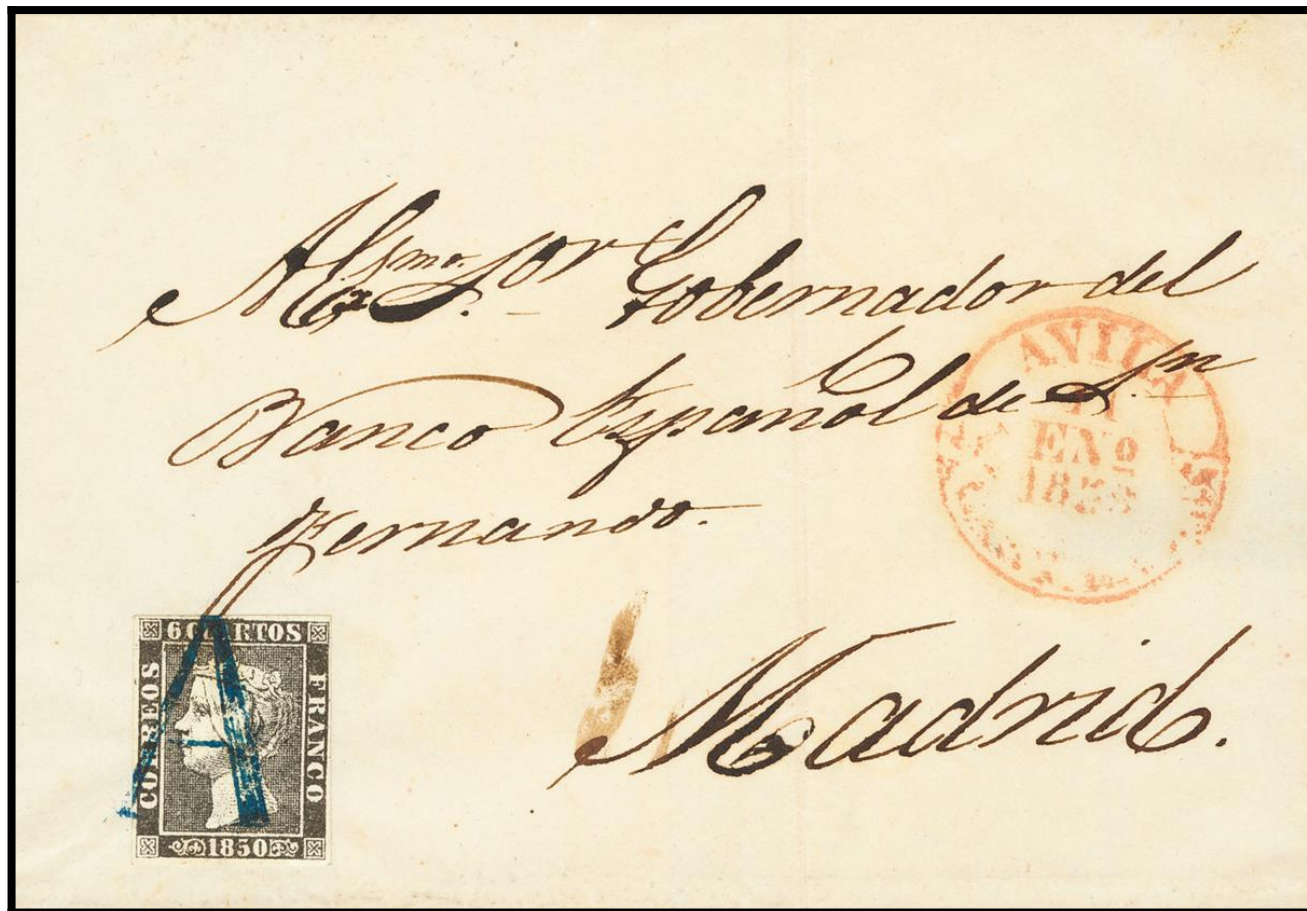 Al Exmo. Sor. Gobernador del
Banco Español de Sn
Fernando.
Madrid.
AVILA
ENº
6 CUARTOS
CORREOS
FRANCO
1850
A